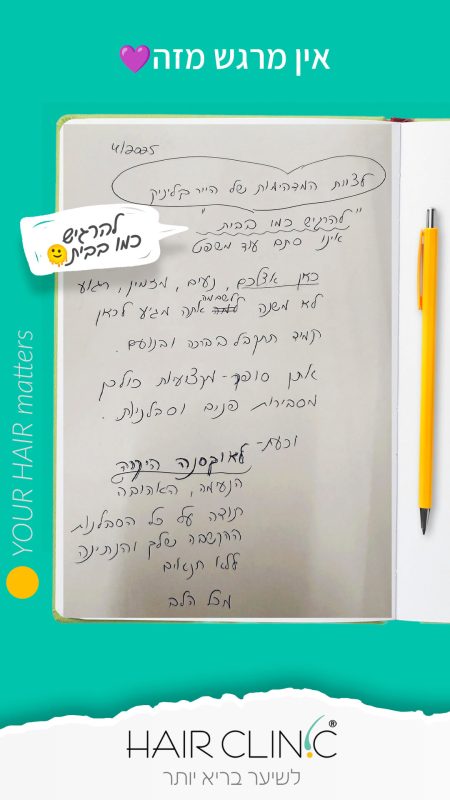 אין מרגש מזה💜
4/2025
לצוות המדהימות של הייר קליניק
"להרגיש כמו בבית"
אינו סתם עוד משפט
להרגיש
כמו בבית
כאן אצלכם, נעים, מזמין, רגוע
לא משנה לשם מה אתה מגיע לכאן
תמיד תתקבל בברכה ובנועם.
אתן סופר-מקצועיות כולכן
מסבירות פנים וסבלניות.
וכעת-
לאוקסנה היקרה
הנעימה, האהובה
תודה על כל הסבלנות
ההקשבה שלך והנתינה
ללא תנאים
מכל הלב
YOUR HAIR matters
HAIR CLINIC®
לשיער בריא יותר